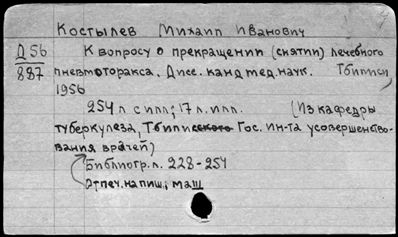 Костылев Михаил Иванович
Д 56
887
К вопросу о прекращении (снятии) лечебного
пневмоторакса. Дисс. канд. мед. наук. Тбилиси
1956
254 л. с илл.; 17 л. илл. (Из кафедры
туберкулеза, Тбилисского Гос. ин-та усовершенство-
вания врачей)
Библиогр. л. 228-254
Отпеч. на пиш. маш